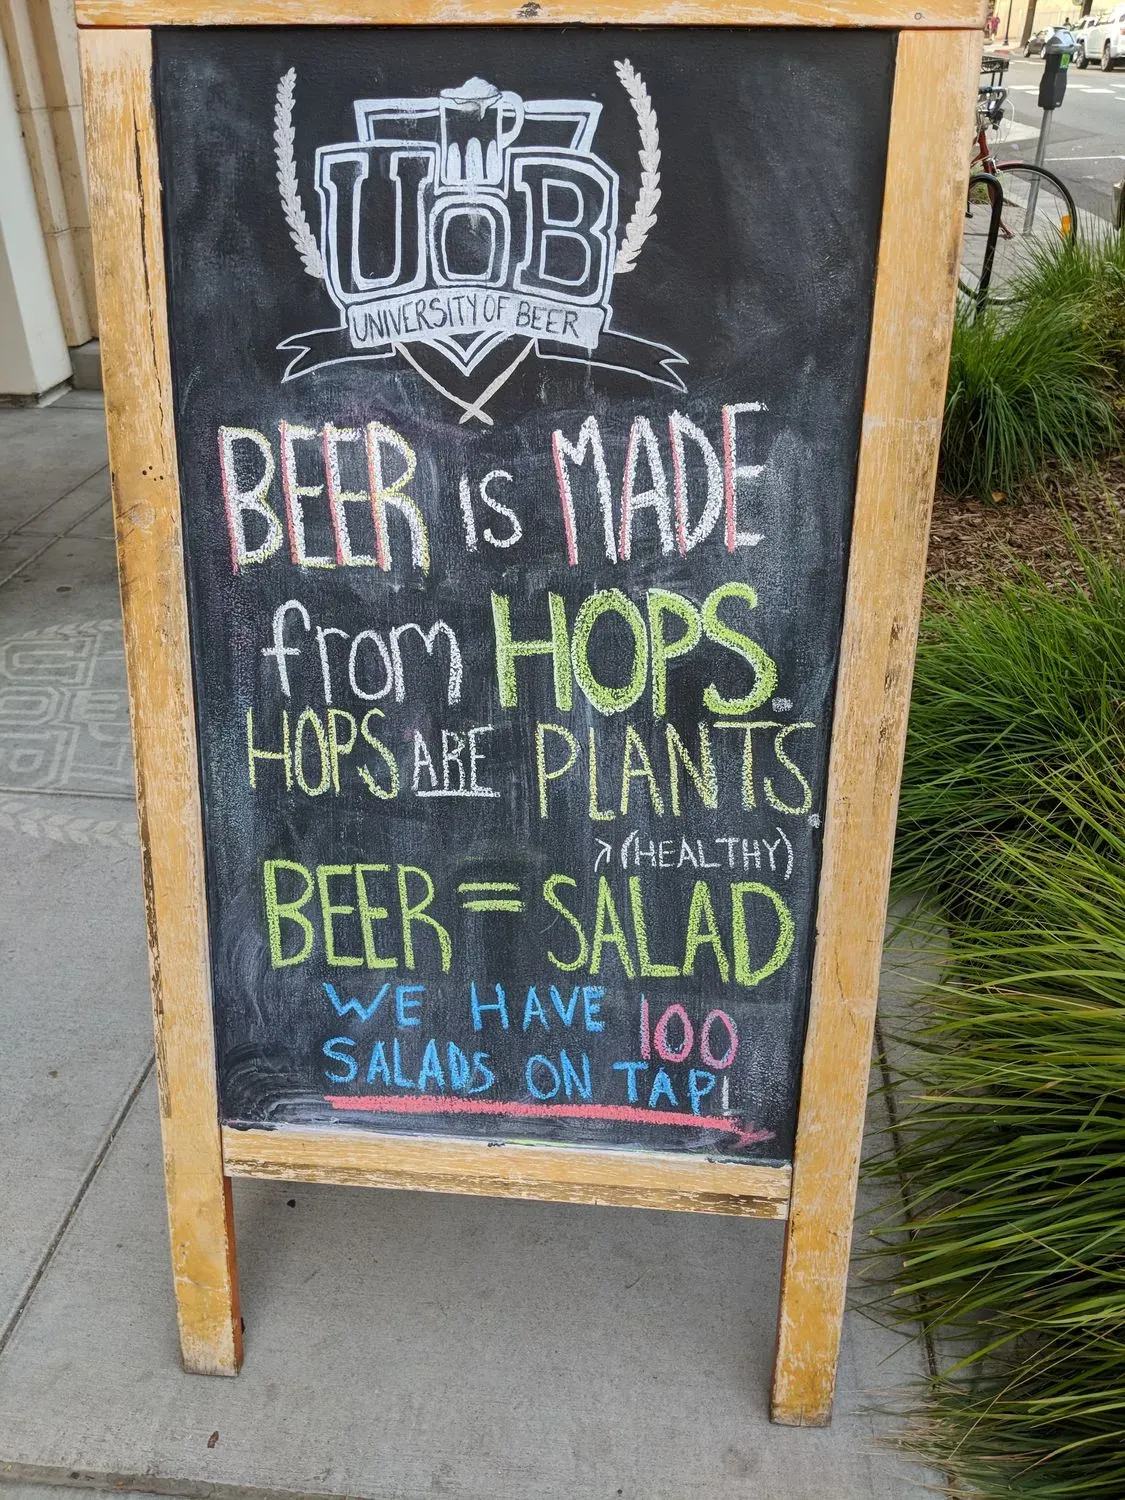 UOB
UNIVERSITY OF BEER
BEER is MADE
from HOPS.
HOPS ARE PLANTS.
(HEALTHY)
BEER = SALAD
WE HAVE 100
SALADS ON TAP!